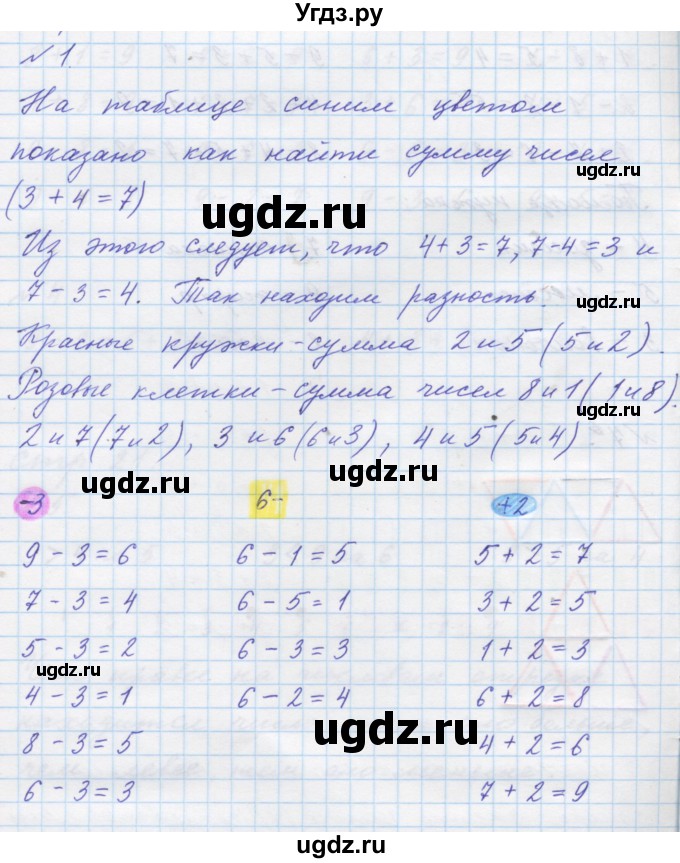 Угдз.ру
№1.
На таблице синим цветом
показано как найти сумму чисел
(3 + 4 = 7)
ugdz.ru
Из этого следует, что 4 + 3 = 7, 7 - 4 = 3 и
ugdz.ru
7 - 3 = 4. Так находим разность.
ugdz.ru
Красные кружки - сумма 2 и 5 (5 и 2).
Розовые клетки - сумма чисел 8 и 1 (1 и 8).
ugdz.ru
2 и 7 (7 и 2), 3 и 6 (6 и 3), 4 и 5 (5 и 4).
ugdz.ru
-3 6- +2
9 - 3 = 6 6 - 1 = 5 5 + 2 = 7
7 - 3 = 4 6 - 5 = 1 3 + 2 = 5
5 - 3 = 2 6 - 3 = 3 1 + 2 = 3
ugdz.ru
4 - 3 = 1 6 - 2 = 4 6 + 2 = 8
ugdz.ru
8 - 3 = 5 4 + 2 = 6
6 - 3 = 3 7 + 2 = 9
ugdz.ru